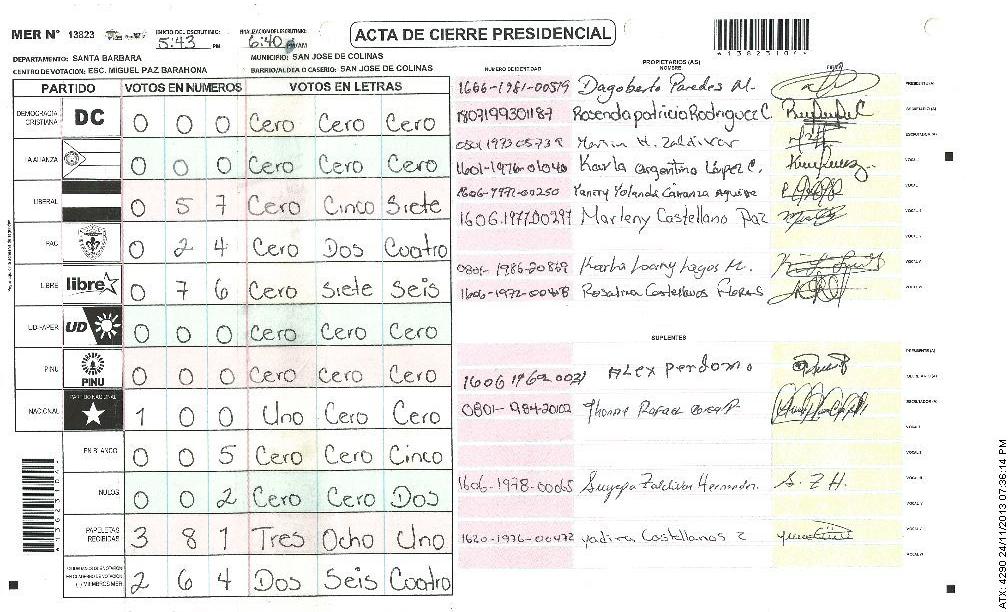 MER N° 13823 INICIO DEL ESCRUTINIO: 5:43 PM FINALIZACION ESCRUTINIO: 6:40 PM/AM
ACTA DE CIERRE PRESIDENCIAL
DEPARTAMENTO: SANTA BARBARA MUNICIPIO: SAN JOSE DE COLINAS
CENTRO DE VOTACION: ESC. MIGUEL PAZ BARAHONA BARRIO/ALDEA O CASERIO: SAN JOSE DE COLINAS
PARTIDO VOTOS EN NUMEROS VOTOS EN LETRAS
DEMOCRACIA CRISTIANA DC 0 0 0 Cero Cero Cero
ALIANZA 0 0 0 Cero Cero Cero
LIBERAL 0 5 7 Cero Cinco Siete
PAC 0 2 4 Cero Dos Cuatro
LIBRE libre 0 7 6 Cero Siete Seis
UD-FAPER UD 0 0 0 Cero Cero Cero
PINU PINU 0 0 0 Cero Cero Cero
NACIONAL PARTIDO NACIONAL 1 0 0 Uno Cero Cero
EN BLANCO 0 0 5 Cero Cero Cinco
NULOS 0 0 2 Cero Cero Dos
PAPELETAS RECIBIDAS 3 8 1 Tres Ocho Uno
2 6 4 Dos Seis Cuatro
PROPIETARIOS (AS)
NUMERO DE IDENTIDAD NOMBRE FIRMA
1606-1981-00519 Dagoberto Paredes M. PRESIDENTE (A)
1807199301187 Rosenda patricia Rodriguez C. SECRETARIO (A)
ESCRUTADOR (A)
1601-1976-01040 Karla Argentina López C.
1606-1971-00250 Yanery Yolanda Carranza Aguilar
1606.1977.00297 Marleny Castellano Paz
0801-1986-20869 Karla Loany Lagos M.
Rosalina Castellanos
SUPLENTES
PRESIDENTE (A)
Alex perdomo SECRETARIO (A)
Jhonny Rafael ESCRUTADOR (A)
1606-1978-00065 Suyapa Zaldivar Hernandez. S. Z H.
1620-1976-00472 yadira Castellanos
ATX: 4290 24/11/2013 07:36:14 PM